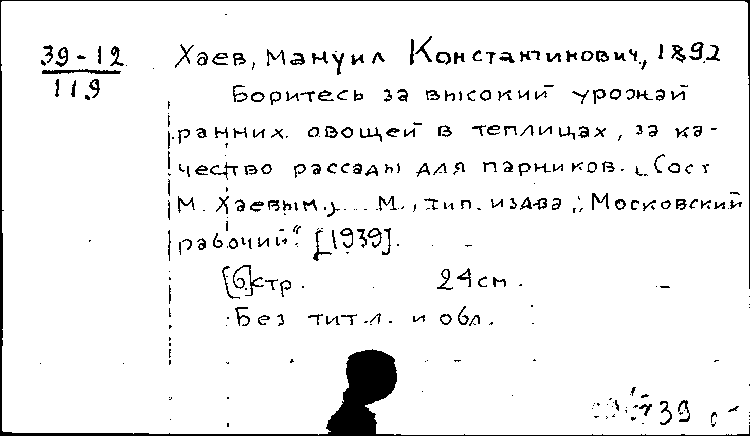 39-12
119
Хаев, Мануил Константинович, 1892
Боритесь за высокий урожай
ранних овощей в теплицах, за ка-
чество рассады для парников. [Сост
М. Хаевым.] М., тип. изд-ва „Московский
рабочий“ [1939].
[6] стр. 24 см.
Без тит.л. и обл.
39